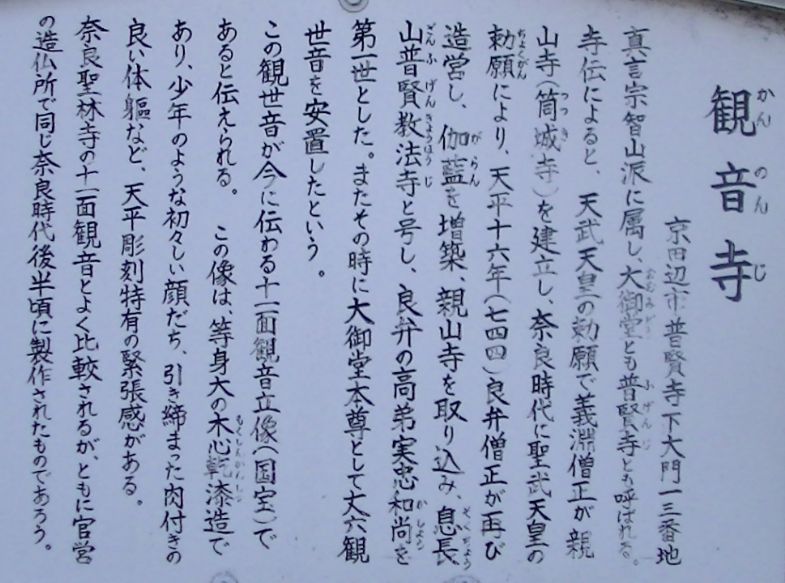 観音寺
京田辺市普賢寺下大門一三番地
真言宗智山派に属し、大御堂とも普賢寺とも呼ばれる。
寺伝によると、天武天皇の勅願で義淵僧正が親
山寺(筒城寺)を建立し、奈良時代に聖武天皇の
勅願により、天平十六年(七四四)良弁僧正が再び
造営し、伽藍を増築、親山寺を取り込み、息長
山普賢教法寺と号し、良弁の高弟実忠和尚を
第一世とした。またその時に大御堂本尊として丈六観
世音を安置したという。
この観世音が今に伝わる十一面観音立像(国宝)で
あると伝えられる。この像は、等身大の木心乾漆造で
あり、少年のような初々しい顔だち、引き締まった肉付きの
良い体軀など、天平彫刻特有の緊張感がある。
奈良聖林寺の十一面観音とよく比較されるが、ともに官営
の造仏所で同じ奈良時代後半頃に製作されたものであろう。